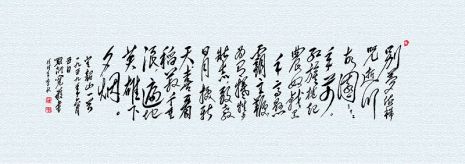 别梦依稀
咒逝川
故园三十
二年前
红旗卷起
农奴戟黑
手高悬
霸主鞭
为有牺牲多
壮志敢教
日月换新
天喜看
稻菽千重
浪遍地
英雄下
夕烟。
韶山一首
一九五九年六月